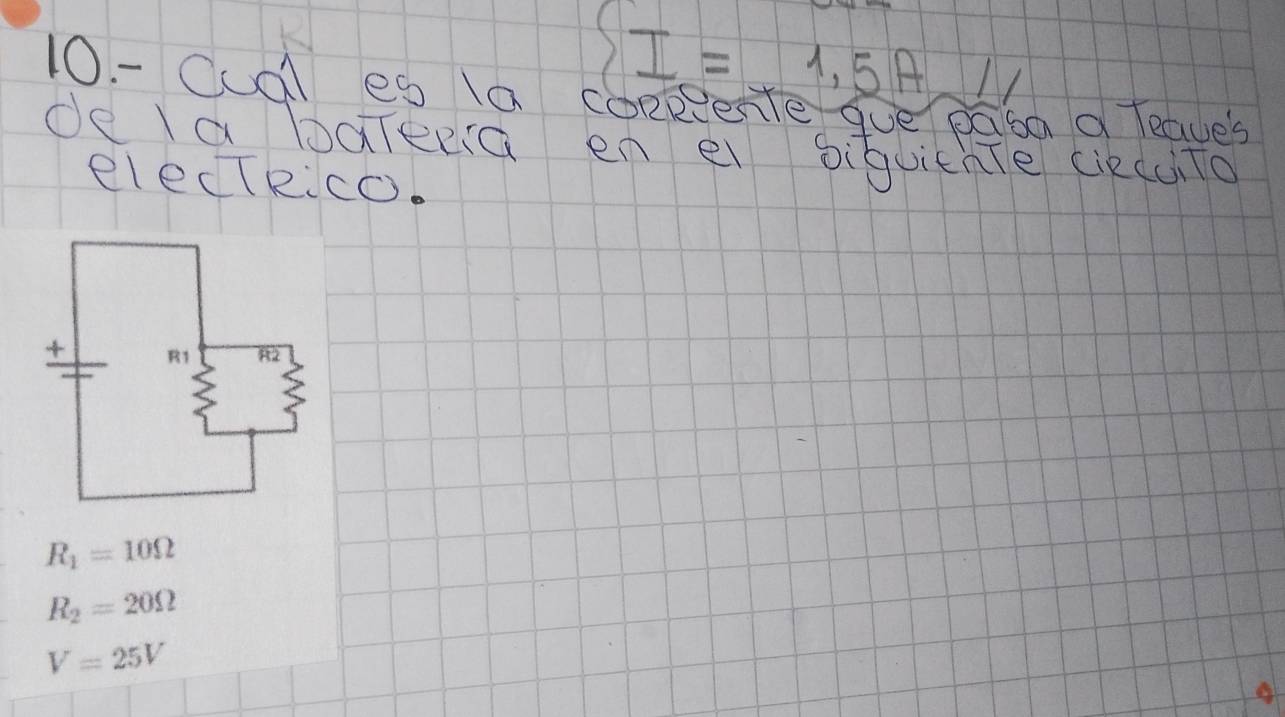 I = 1,5A //
10.- Cual es la corriente que pasa a Traves
de la bateria en el siguiente circuito
electrico.
+
R1 R2
R₁ = 10Ω
R₂ = 20Ω
V = 25V